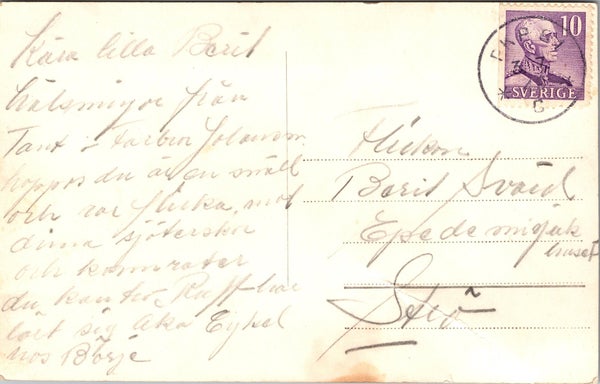 Kära lilla Berit
hälsningor från
Tant o farbror Johansson
hoppas du är en snäll
och rar flicka, mot
dina sjöterskor
och kamrater
du kan tro Ruff har
lärt sig åka Cykel
hos Börje
10
SVERIGE
Flickan
Berit Svärd
Epedemisjuk
huset